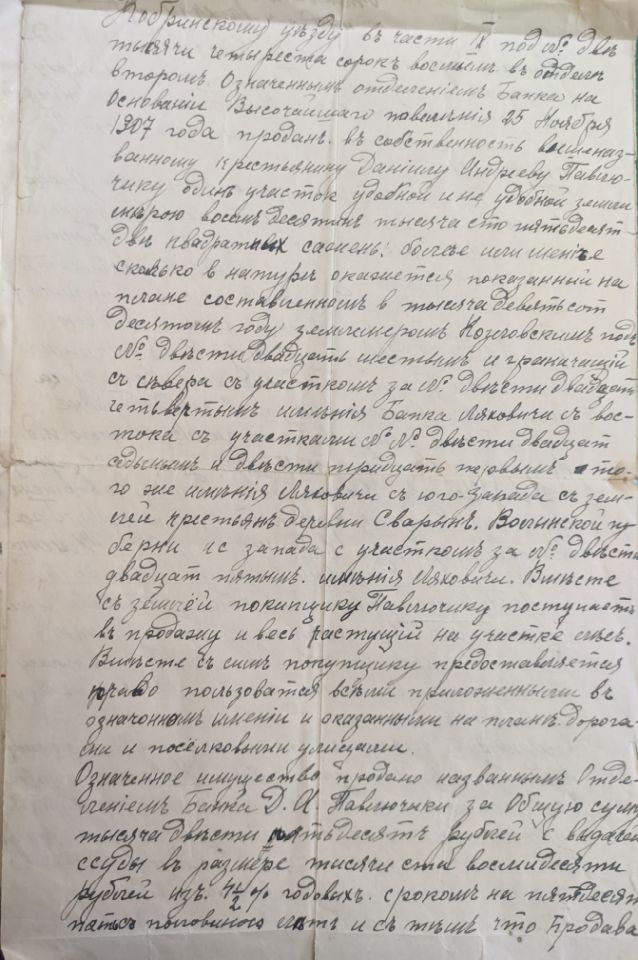 Кобринскому уѣзду въ части IX под №. двѣ
тысячи четыреста сорокъ восьмымъ въ отдѣлѣ
втором. Означеннымъ отделеніемъ Банка на
Основаніи Высочайшаго повелѣнія 25 Ноября
1907 года проданъ. въ собственность вышеназ-
ванному крестьянину Даніилу Андрееву Павлю-
чику одинъ участок удобной и не удобной земли
мѣрою восемь десятинъ тысяча сто пятьдесят
двѣ квадратныхъ сажень: более или менѣе
сколько в натурѣ окажется показанный на
плане составленном в тысяча девятьсот
десятомъ году землемером Козловскимъ подъ
№. двѣсти двадцать шестымъ и граничащій
съ сѣвера съ участком за №. двѣсти двадцать
четвертымъ имѣнія Банка Ляховичи съ вос-
тока съ участками №.№. двѣсти двадцат
седьмымъ и двѣсти тридцать первымъ то-
го же имѣнія Ляховичи съ юго-запада съ зем-
лей крестьянъ деревни Сварынь. Волынской гу
берни и с запада с участкомъ за №. двѣсти
двадцат пятымъ. имѣнія Ляховичи. Вмѣсте
съ землёй покупщику Павлючику поступаетъ
въ продажу и весь растущій на участке лѣс.
Вмѣсте съ симъ покупщику предоставляется
право пользоватся всѣми приложенными въ
означонном именіи и оказанными на планѣ дорога-
ми и посёлковыми улицами.
Означенное имущество продано названнымъ Отде-
леніемъ Банка Д. А Павлючики за Общую сум
тысяча двѣсти пятьдесятъ рублей с выдачей
ссуды въ размѣре тысячи ста восмидесяти
рублей изъ. 4½% годовыхъ. срокомъ на пятдесят
пять с половиною лѣтъ и съ тѣмъ что Продава